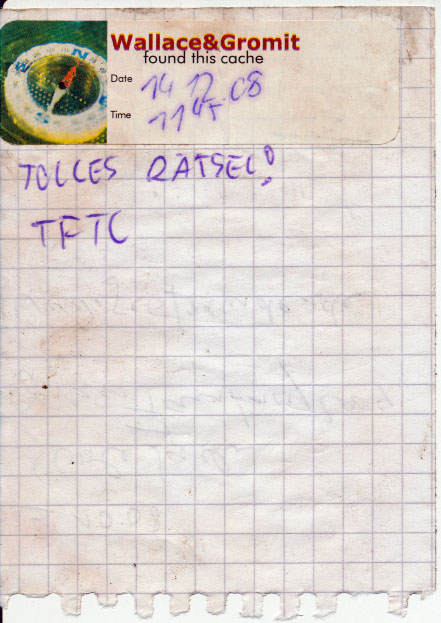 Wallace&Gromit
found this cache
Date 14 12 08
Time
TOLLES RÄTSEL!
TFTC